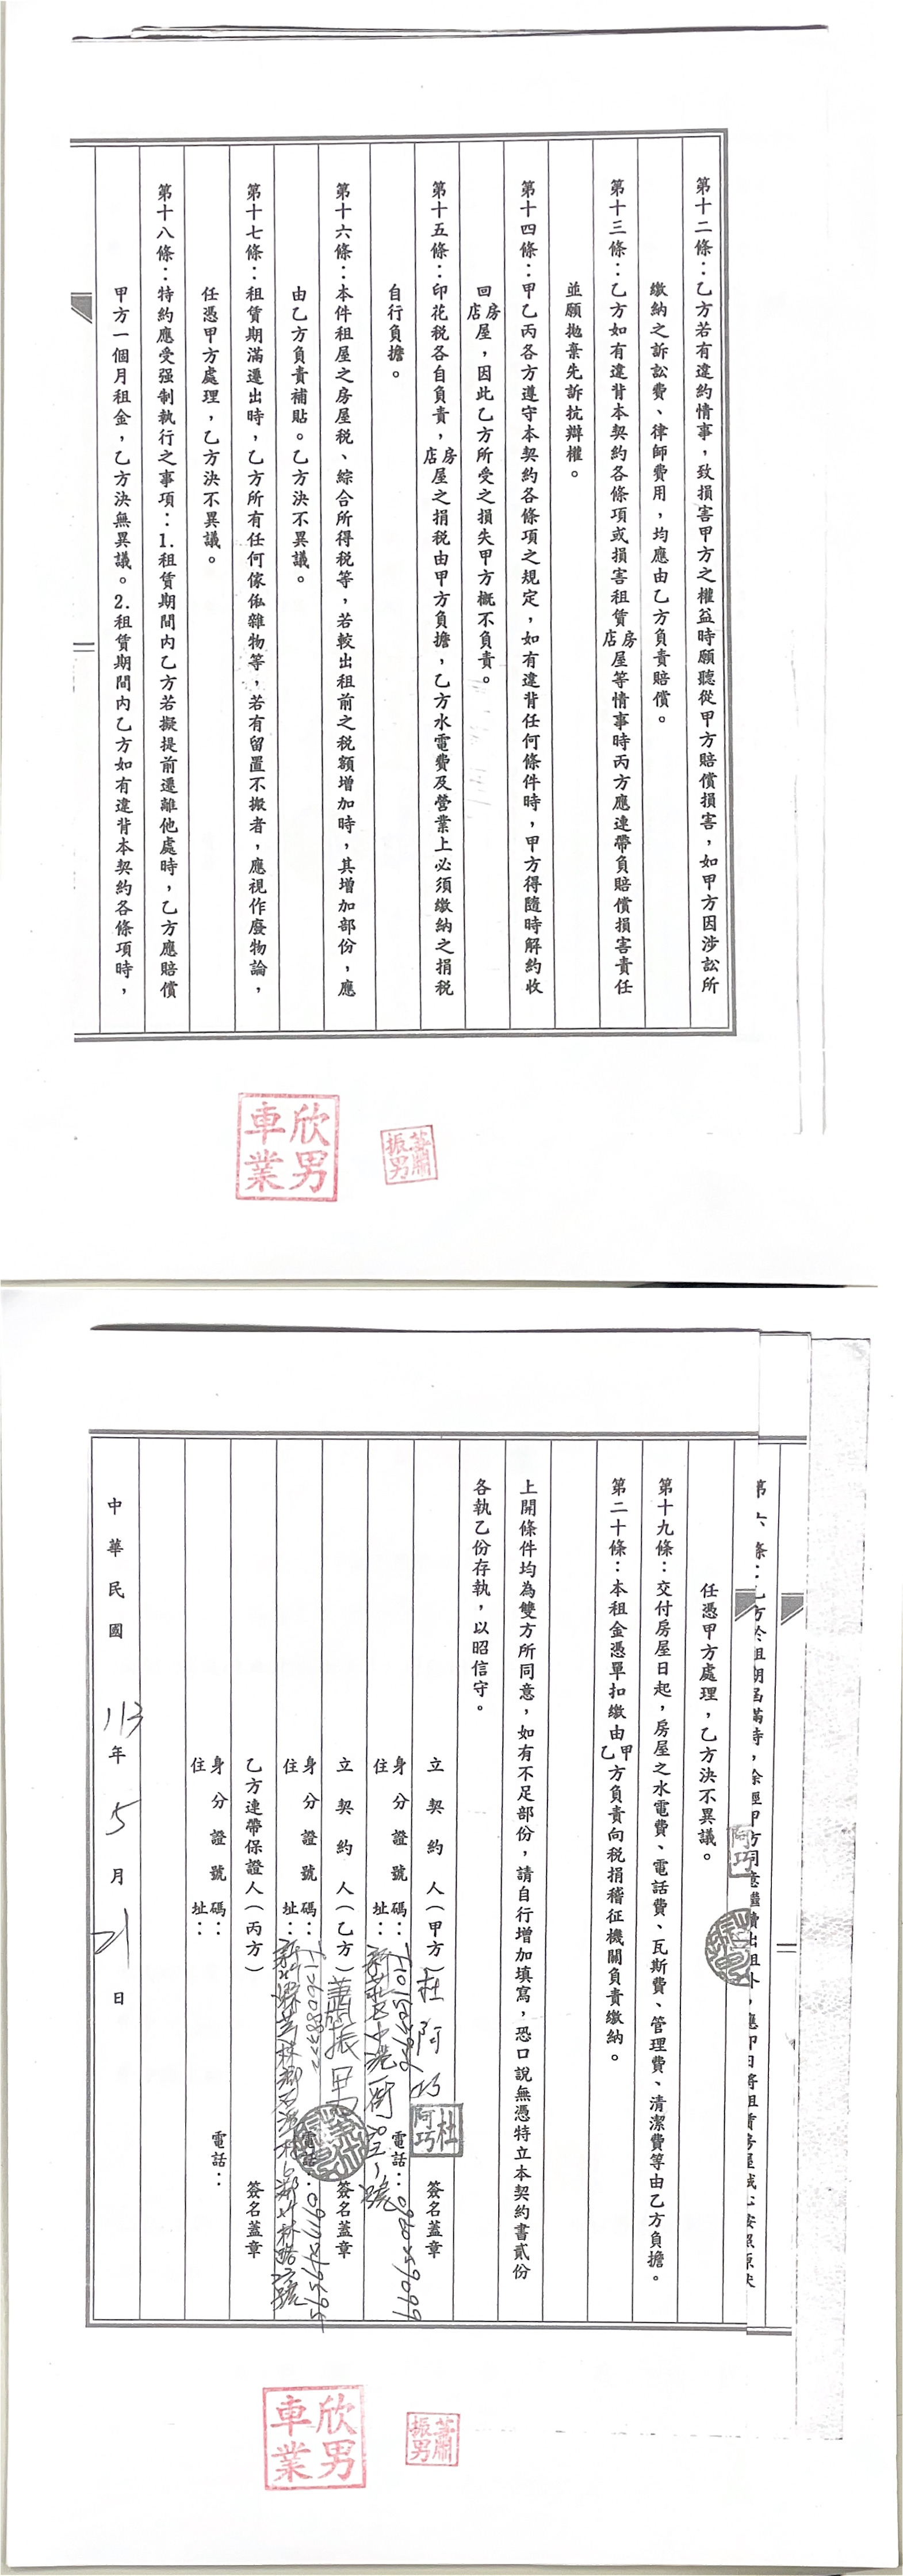 第十二條：乙方若有違約情事，致損害甲方之權益時願聽從甲方賠償損害，如甲方因涉訟所
繳納之訴訟費、律師費用，均應由乙方負責賠償。
第十三條：乙方如有違背本契約各條項或損害租賃店房屋等情事時丙方應連帶負賠償損害責任
並願拋棄先訴抗辯權。
第十四條：甲乙丙各方遵守本契約各條項之規定，如有違背任何條件時，甲方得隨時解約收
回店房屋，因此乙方所受之損失甲方概不負責。
第十五條：印花稅各自負責，店房屋之捐稅由甲方負擔，乙方水電費及營業上必須繳納之捐稅
自行負擔。
第十六條：本件租屋之房屋稅、綜合所得稅等，若較出租前之稅額增加時，其增加部份，應
由乙方負責補貼。乙方決不異議。
第十七條：租賃期滿遷出時，乙方所有任何傢俬雜物等，若有留置不搬者，應視作廢物論，
任憑甲方處理，乙方決不異議。
第十八條：特約應受强制執行之事項：1.租賃期間內乙方若擬提前遷離他處時，乙方應賠償
甲方一個月租金，乙方決無異議。2.租賃期間內乙方如有違背本契約各條項時，
欣男車業
蕭振男
第六條：乙方於租期屆滿時，除經甲方同意繼續出租外，應即日將租賃房屋誠心按照原狀
任憑甲方處理，乙方決不異議。
阿巧
第十九條：交付房屋日起，房屋之水電費、電話費、瓦斯費、管理費、清潔費等由乙方負擔。
第二十條：本租金憑單扣繳由甲乙方負責向稅捐稽征機關負責繳納。
上開條件均為雙方所同意，如有不足部份，請自行增加填寫，恐口說無憑特立本契約書貳份
各執乙份存執，以昭信守。
立契約人（甲方）杜阿巧 簽名蓋章
杜阿巧
身分證號碼：
住址： 電話：
立契約人（乙方）蕭振男 簽名蓋章
身分證號碼：
住址： 電話：
乙方連帶保證人（丙方） 簽名蓋章
身分證號碼：
住址： 電話：
中華民國113年5月21日
欣男車業
蕭振男